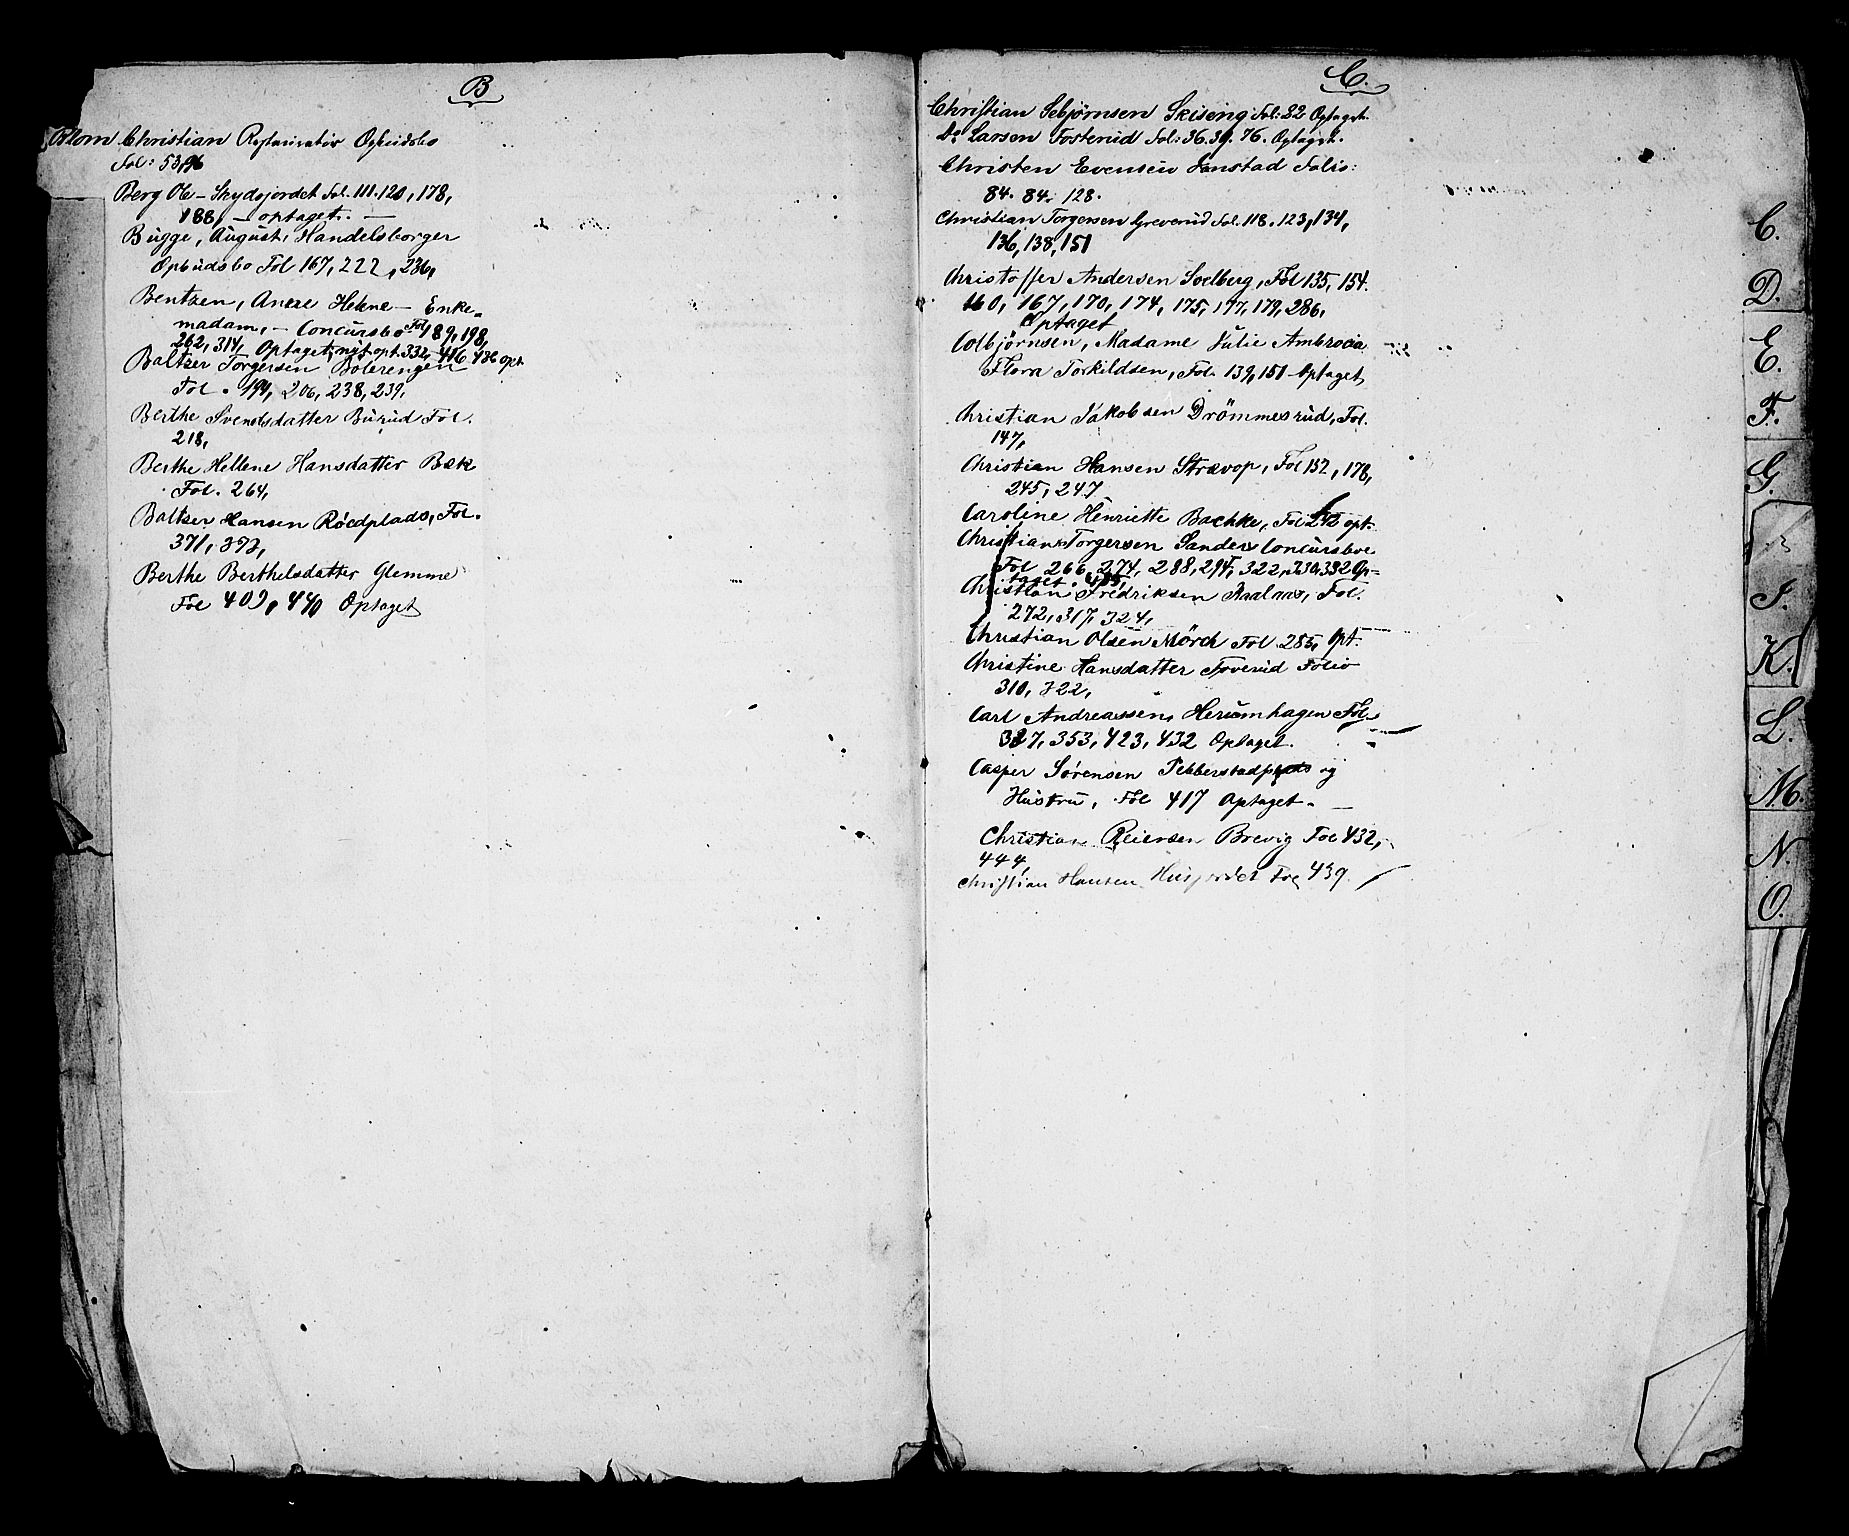 B
Blom Christian Restauratör Opbudsbo
Fol: 53, 96
Berg Ole - Skydsjordet Fol. 111. 120, 178,
188, - optaget. -
Bugge, August, Handelsborger
Opbudsbo Fol 167, 222, 236,
Bentzen, Anne Helene - Enke-
madam, - Concursbo Fol 189, 198,
262, 314, Optaget, nyt opt. 332, 416 436 opt.
Baltzer Torgersen Bolerengen
Fol. 194, 206, 238, 239,
Berthe Svendsdatter Burud Fol.
218,
Berthe Hellene Hansdatter Bæk
Fol. 264,
Baltzer Hansen Röedplads, Fol.
371, 373,
Berthe Berthelsdatter Glemme
Fol 409, 440 Optaget
C.
Christian Sebjørnsen Skiseng Fol: 22 Optaget.
Do Larsen Fosterud Fol: 36. 39. 76. Optaget.
Christen Evensen Fanstad Folio:
84. 84. 128.
Christian Torgersen Greverud Fol. 118. 123, 134,
136, 138, 151
Christoffer Andersen Soelberg, Fol 135, 154.
160, 167, 170, 174, 175, 177, 179, 286,
Optaget
Colbjørnsen, Madame Julie Ambrocia
Flora Torkildsen, Fol. 139, 151 Optaget,
Christian Jakobsen Drömmesrud, Fol.
147,
Christian Hansen Strævop, Fol 152, 178,
245, 247
Caroline Henriette Bachke, Fol 242 opt.
Christian Torgersen Sander Concursboe
Fol 266, 274, 288, 294, 322, 330, 332 Op-
taget. 405,
Christian Fredriksen Aaalaas, Fol.
272, 317, 324,
Christian Olsen Mörch Fol. 285, Opt.
Christine Hansdatter Toverud Folio
310, 322,
Carl Andreassen, Heriumhagen Fol.
327, 353, 423, 432 Optaget.
Casper Sörensen Pebberstadplads og
Hustru, Fol 417 Optaget. -
Christian Reiersen Brevig Fol 432,
444,
Christian Hansen Husjordet Fol 439.
C.
D.
E.
F.
G.
I.
K.
L.
M.
N.
O.